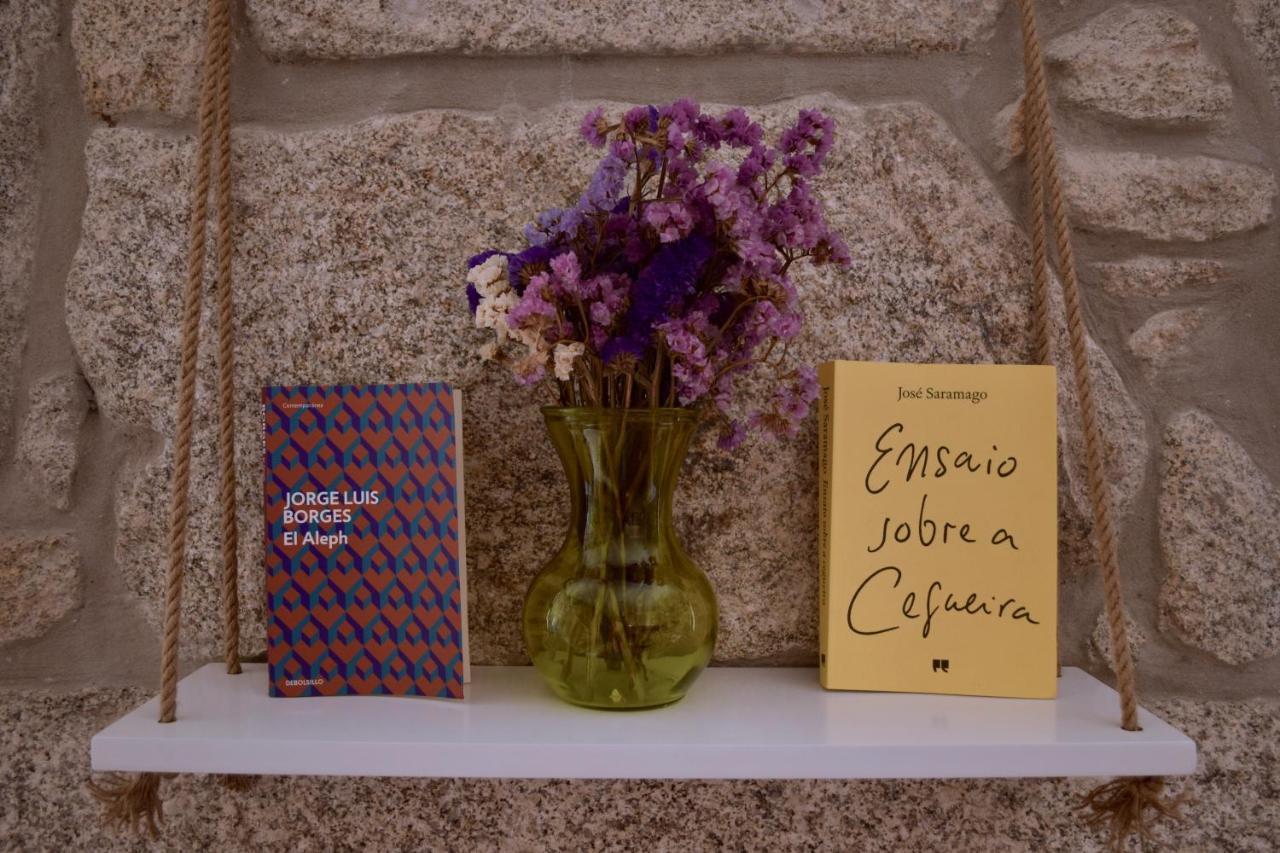 Contemporánea
JORGE LUIS
BORGES
El Aleph
DEBOLSILLO
José Saramago
Ensaio
sobre a
Cegueira
José Saramago Ensaio sobre a cegueira